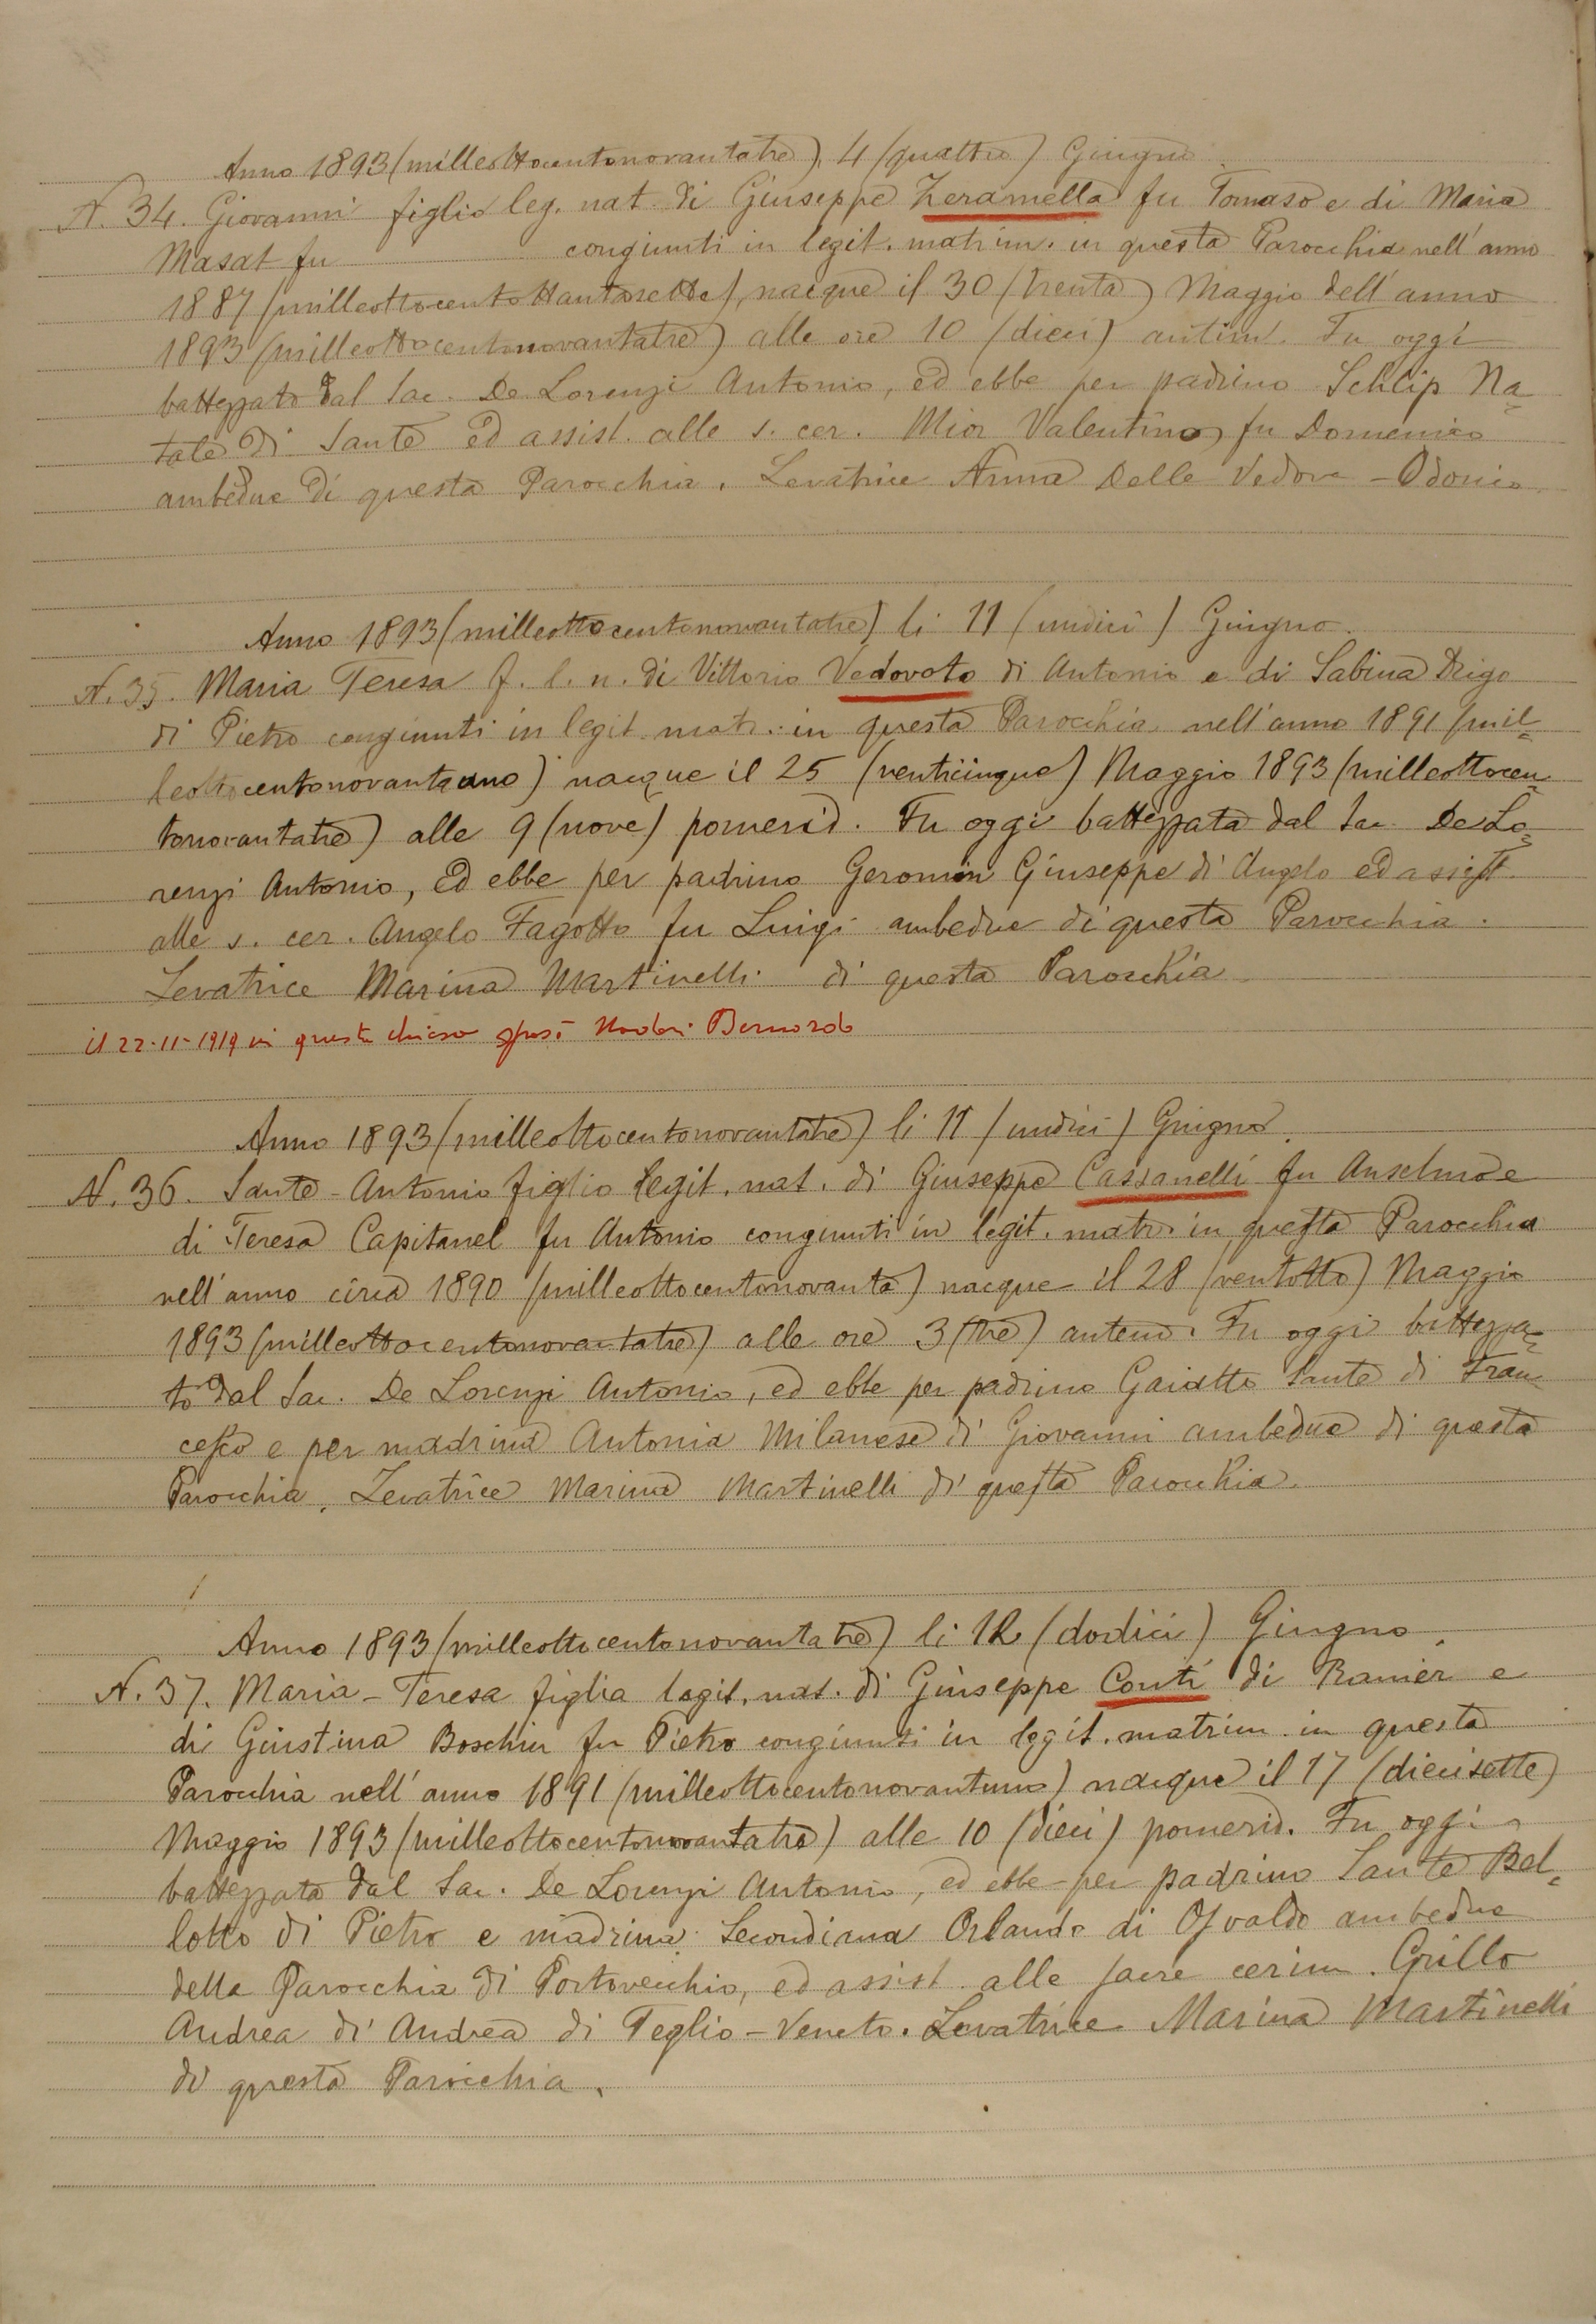 Anno 1893 (milleottocentonovantatre) 4 (quattro) Giugno.
N. 34. Giovanni figlio leg. nat. di Giuseppe Zeramella fu Tomaso e di Maria
Masat fu congiunti in legit. matrim. in questa Parocchia nell'anno
1887 (milleottocentottantasette), nacque il 30 (trenta) Maggio dell'anno
1893 (milleottocentonovantatre) alle ore 10 (dieci) antim. Fu oggi
battezzato dal Sac. De Lorenzi Antonio, ed ebbe per padrino Schlip Na=
tale di Sante ed assist. alle s. cer. Mior Valentino fu Domenico
ambedue di questa Parocchia. Levatrice Anna Delle Vedove - Odorico
Anno 1893 (milleottocentonovantatre) li 11 (undici) Giugno.
N. 35. Maria Teresa f. l. n. di Vittorio Vedovoto di Antonio e di Sabina Drigo
di Pietro congiunti in legit. matr. in questa Parocchia nell'anno 1891 (mil=
leottocentonovantauno) nacque il 25 (venticinque) Maggio 1893 (milleottocen=
tonovantatre) alle 9 (nove) pomerid. Fu oggi battezzata dal Sac. De Lo=
renzi Antonio, ed ebbe per padrino Geromin Giuseppe di Angelo ed assist.
alle s. cer. Angelo Fagotto fu Luigi ambedue di questa Parocchia.
Levatrice Marina Martinelli di questa Parocchia
il 22-11-1919 in questa chiesa sposò Bernardo
Anno 1893 (milleottocentonovantatre) li 11 (undici) Giugno.
N. 36. Sante - Antonio figlio legit. nat. di Giuseppe Cassanelli fu Anselmo e
di Teresa Capitanel fu Antonio congiunti in legit. matr. in questa Parocchia
nell'anno circa 1890 (milleottocentonovanta) nacque il 28 (ventotto) Maggio
1893 (milleottocentonovantatre) alle ore 3 (tre) antem. Fu oggi battezza=
to dal Sac. De Lorenzi Antonio, ed ebbe per padrino Gaiatto Sante di Fran=
cesco e per madrina Antonia Milanese di Giovanni ambedue di questa
Parocchia. Levatrice Marina Martinelli di questa Parocchia.
Anno 1893 (milleottocentonovantatre) li 12 (dodici) Giugno.
N. 37. Maria - Teresa figlia legit. nat. di Giuseppe Conti di Ranier e
di Giustina Boschin fu Pietro congiunti in legit. matrim. in questa
Parocchia nell'anno 1891 (milleottocentonovantuno) nacque il 17 (diecisette)
Maggio 1893 (milleottocentonovantatre) alle 10 (dieci) pomerid. Fu oggi
battezzata dal Sac. De Lorenzi Antonio, ed ebbe per padrino Sante Bel=
lotto di Pietro e madrina Secondiana Orlando di Osvaldo ambedue
della Parocchia di Portovecchio, ed assist. alle sacre cerim. Grillo
Andrea di Andrea di Teglio - Veneto. Levatrice Marina Martinelli
di questa Parocchia.